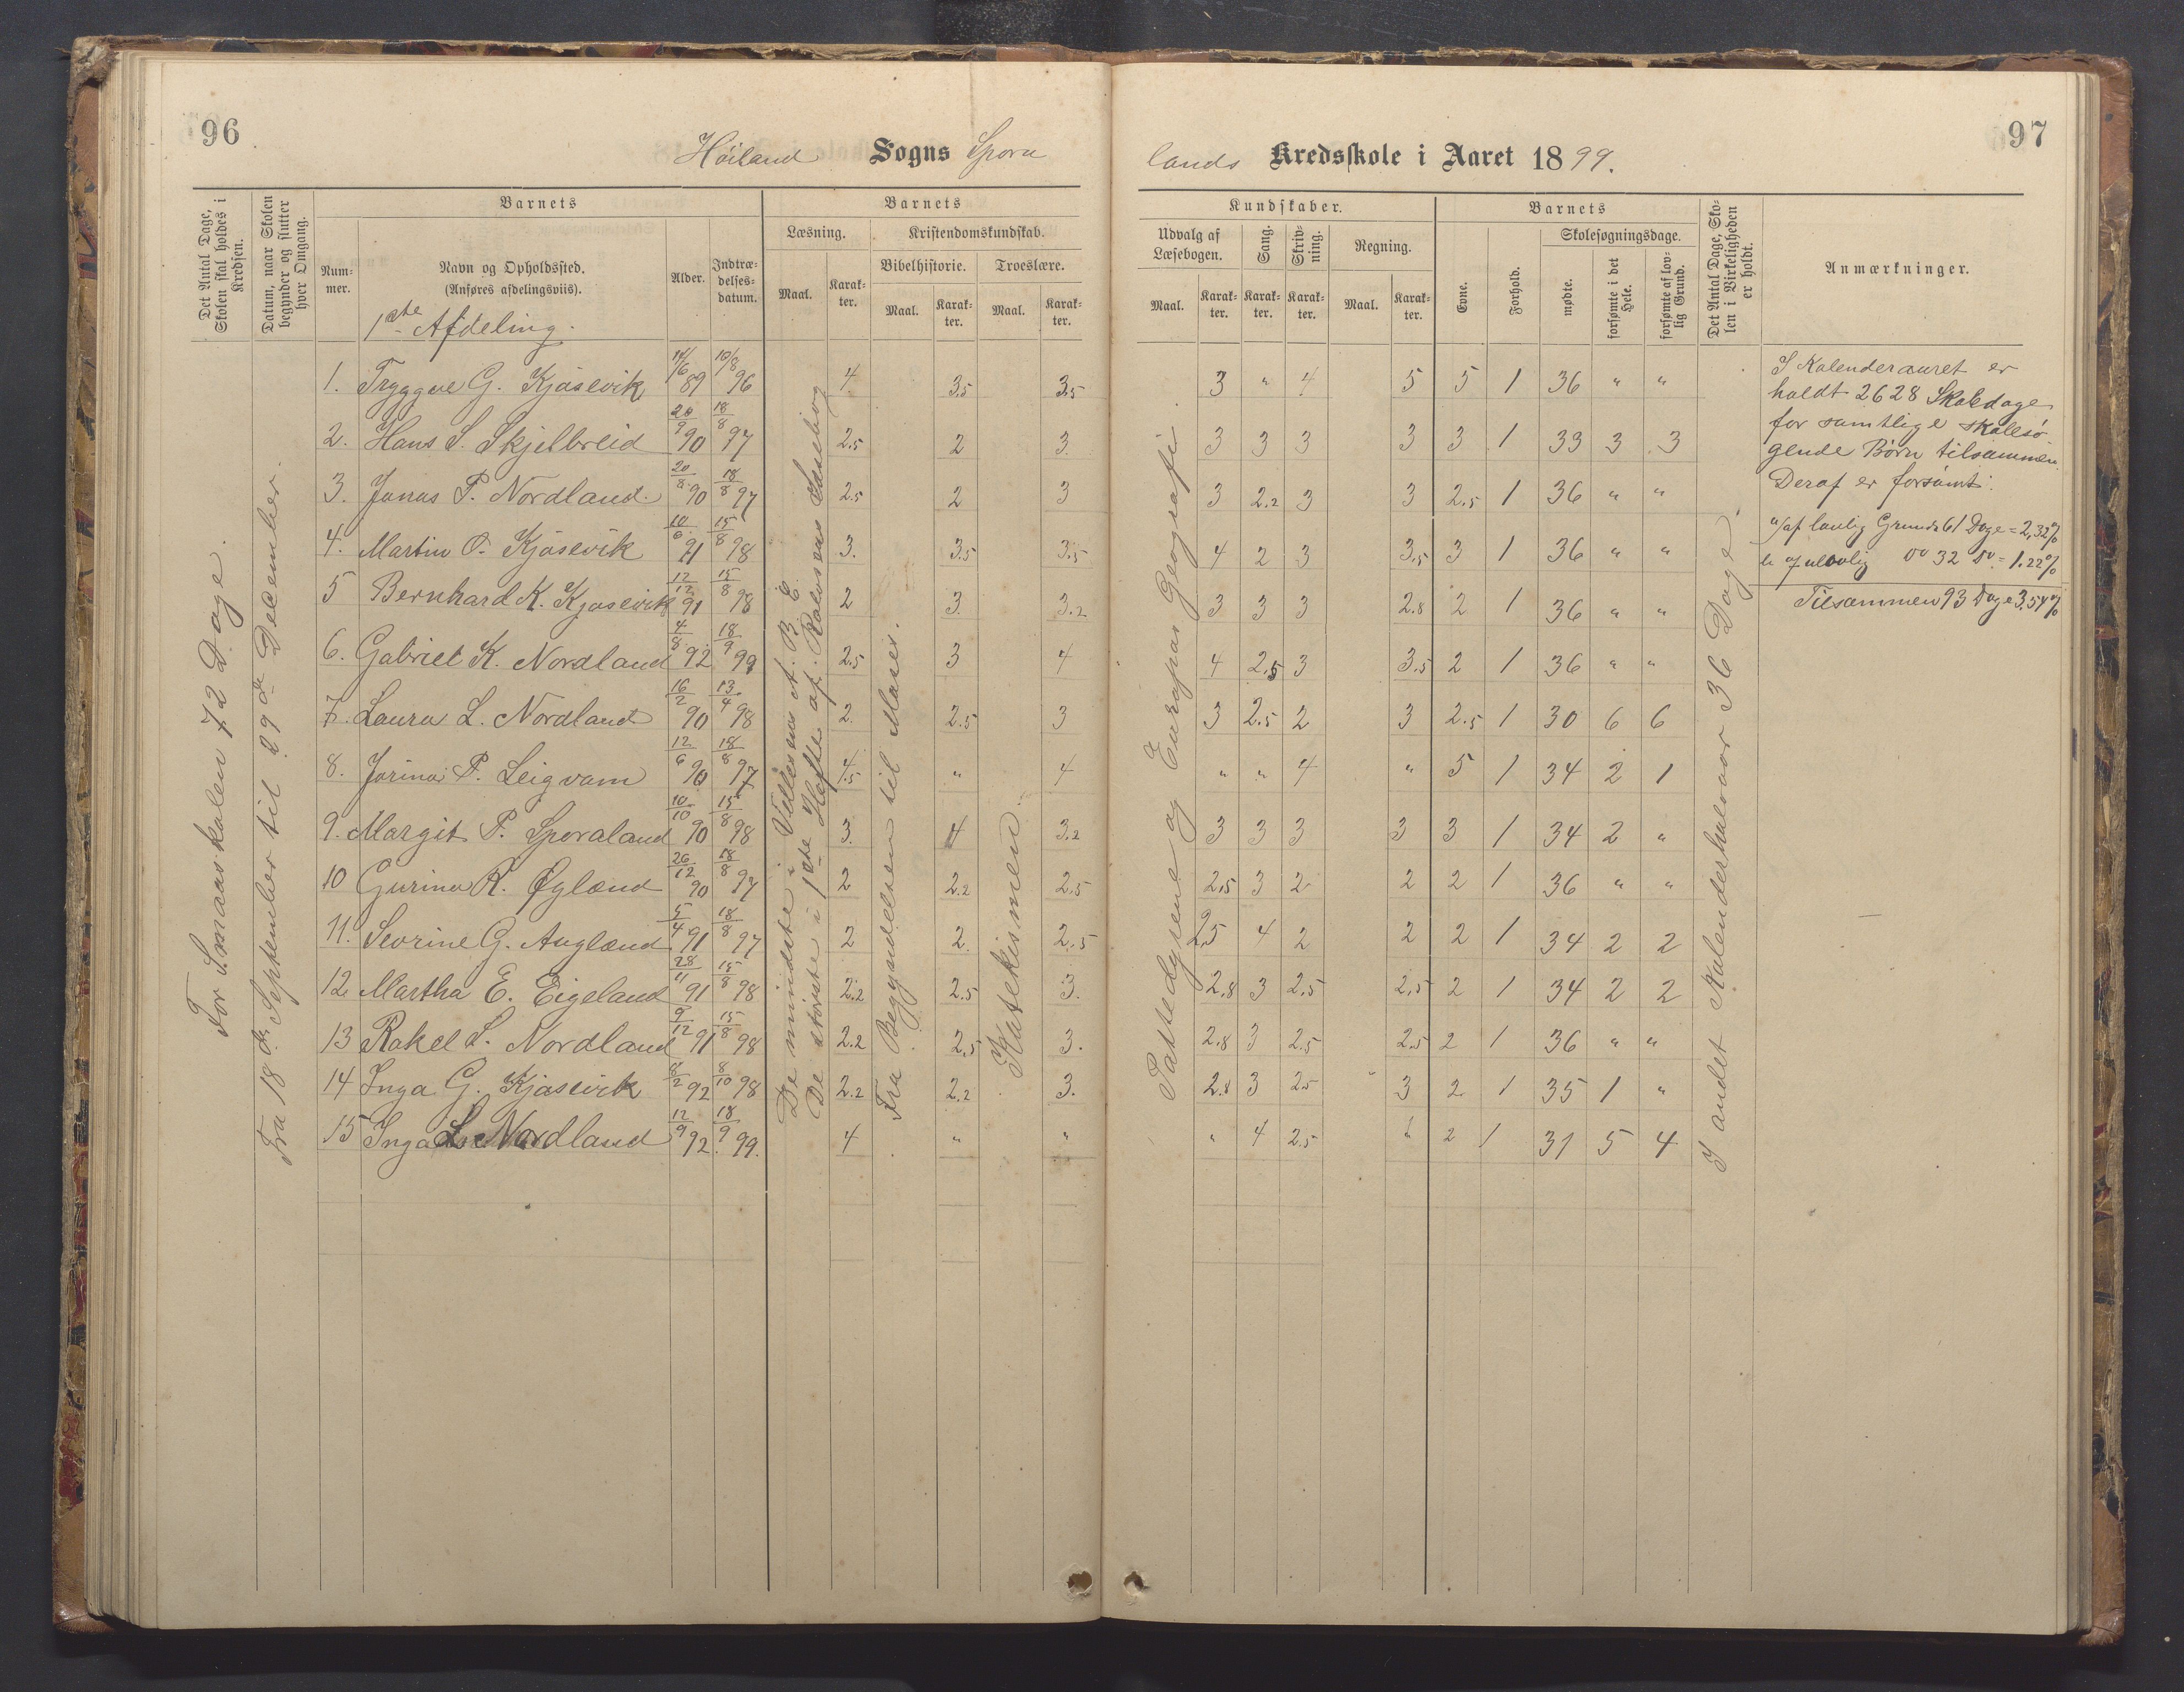 96
Høiland Sogns Spora
Det Antal Dage, Skolen skal holdes i Kredsen.
Datum, naar Skolen begynder og slutter hver Omgang.
Barnets
Barnets
Num-mer.
Navn og Opholdssted. (Anføres afdelingsviis).
Alder.
Indtræ-delses-datum.
Læsning.
Kristendomskundskab.
Bibelhistorie.
Troeslære.
Maal.
Karak-ter.
Maal.
Karak-ter.
Maal.
Karak-ter.
1ste Afdeling.
For Smaaskolen 72 Dage.
Fra 18de September til 29de December.
De mindste i Vellesens A. B. C.
De største i 1ste Hefte af Rolvsens Læsebog
Fra Begyndelsen til Moses.
Katekismen.
1. Tryggve G. Kjøsevik 14/6 89 10/8 96 4 3.5 3.5
2. Hans S. Skjelbreid 20/9 90 18/8 97 2.5 2 3.
3. Jonas P. Nordland. 20/8 90 18/8 97 2.5 2 3
4. Martin O. Kjøsevik 10/6 91 15/8 98 3. 3.5 3.5
5 Bernhard K. Kjøsevik 12/12 91 15/8 98 2 3. 3.2
6. Gabriel K. Nordland 4/8 92 18/9 99 2.5 3 4
7. Laura L. Nordland 16/2 90 13/4 98 2. 2.5 3
8. Jorina P. Leigvam 12/6 90 18/8 97 4.5 " 4
9. Margit P. Sporaland 10/10 90 15/8 98 3. 4 3.2
10 Gurina R. Øglænd 26/12 90 18/8 97 2 2.2 2.5
11. Sevrine G. Auglænd 5/4 91 18/8 97 2 2. 2.5
12. Martha E. Eigeland 28/11 91 15/8 98 2.2 2.5 3.
13 Rakel L. Nordland 9/12 91 15/8 98 2.2 2.5 3.
14 Inga G. Kjøsevik 8/2 92 8/10 98 2.2 2.2 3.
15 Inga L. Nordland 12/9 92. 18/9 99. 4 " "
97
lands Kredsskole i Aaret 1899.
Kundskaber.
Barnets
Udvalg af Læsebogen.
Sang.
Skriv-ning.
Regning.
Evne.
Forhold.
Skolesøgningsdage.
Det Antal Dage, Sko-len i Virkeligheden er holdt.
Anmærkninger.
Maal.
Karak-ter.
Karak-ter.
Karak-ter.
Maal.
Karak-ter.
mødte.
forsømte i det Hele.
forsømte af lov-lig Grund.
Pattedyrene og Europas Geografi.
I andet Kalenderhalvaar 36 Dage.
3 " 4 5 5 1 36 " "
3 3 3 3 3 1 33 3 3
3 2.2 3 3 2.5 1 36 " "
4 2 3 3.5 3 1 36 " "
3 3 3 2.8 2 1 36 " "
4 2.5 3 3.5 2 1 36 " "
3 2.5 2 3 2.5 1 30 6 6
" " 4 " 5 1 34 2 1
3 3 3 3 3 1 34 2 "
2.5 3 2 2 2 1 36 " "
2.5 4 2 2 2 1 34 2 2
2.8 3 2.5 2.5 2 1 34 2 2
2.8 3 2.5 2.5 2 1 36 " "
2.8 3 2.5 3 2 1 35 1 "
" 4 2.5 " 2 1 31 5 4
I Kalenderaaret er
holdt 2628 Skoledage
for samtlige skolesø-
gende Børn tilsammen.
Deraf er forsømt:
a/ af lovlig Grund 61 Dage = 2,32%
b af ulovlig do 32 do = 1.22%
Tilsammen 93 Dage 3,54%